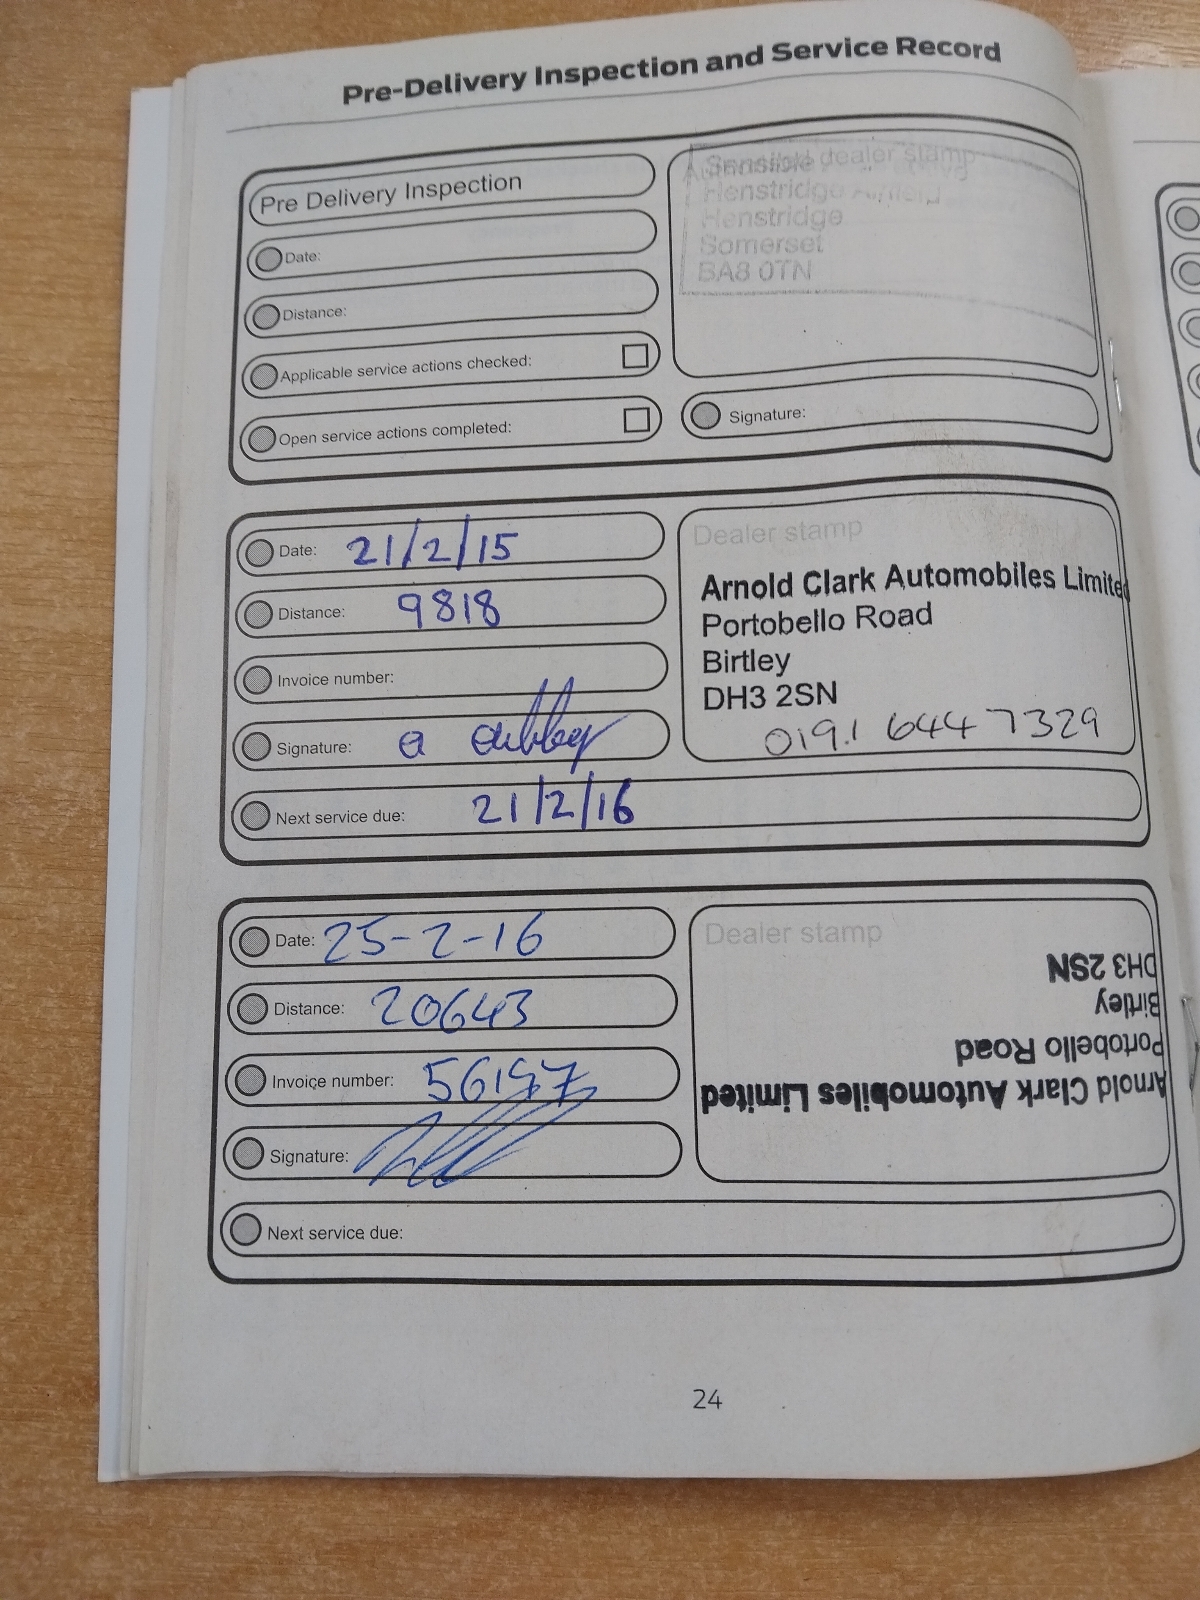 Pre-Delivery Inspection and Service Record
Pre Delivery Inspection
Date:
Distance:
Applicable service actions checked:
Open service actions completed:
dealer stamp
Sensible
Henstridge
Henstridge
Somerset
BA8 0TN
Signature:
Date: 21/2/15
Distance: 9818
Invoice number:
Signature: a
Next service due: 21/2/16
Dealer stamp
Arnold Clark Automobiles Limited
Portobello Road
Birtley
DH3 2SN
0191 644 7329
Date: 25-2-16
Distance: 20643
Invoice number:
Signature:
Next service due:
Dealer stamp
Arnold Clark Automobiles Limited
Portobello Road
Birtley
DH3 2SN
24